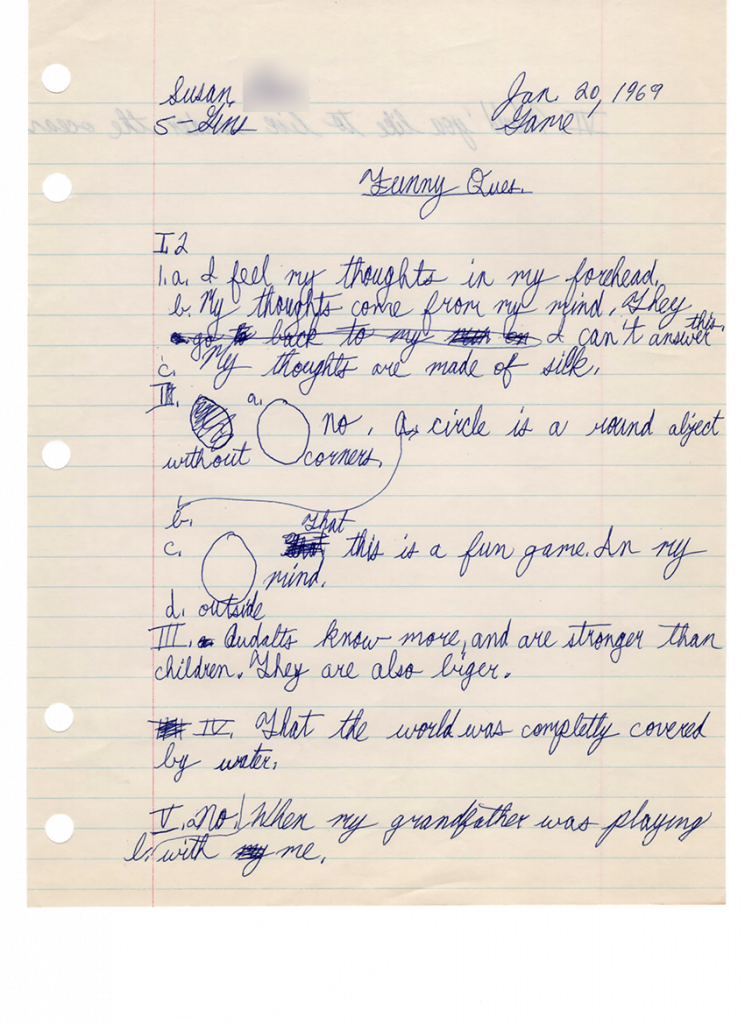 Susan
Jan. 20, 1969
5-Gins
Game
Funny Ques.
I. 2
1. a. I feel my thoughts in my forehead.
b. My thoughts come from my mind. They
go to back to my on I can't answer this.
c. My thoughts are made of silk.
II. a. No. A circle is a round abject
without corners.
b.
c. That this is a fun game. In my
mind.
d. outside
III. Audalts know more, and are stronger than
children. They are also biger.
IV. That the world was completly covered
by water.
V. a No. When my grandfather was playing
b. with my me.